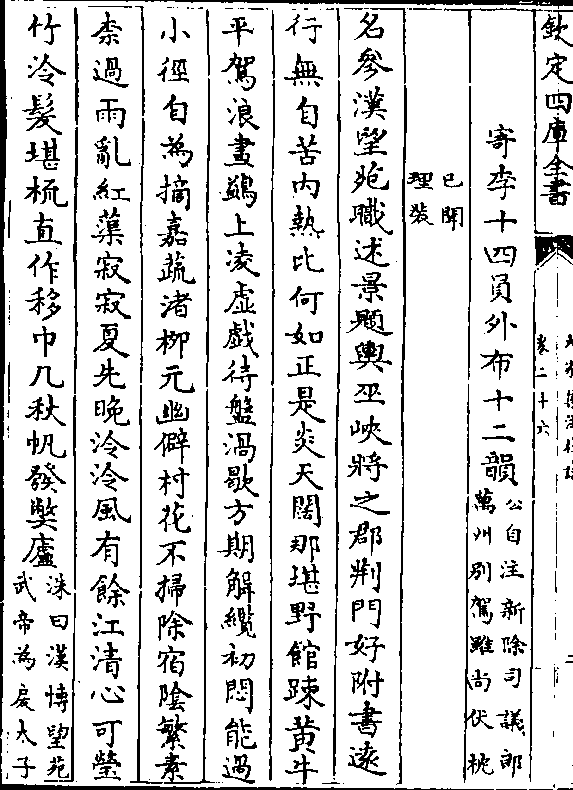 欽定四庫全書
卷二十六
寄李十四員外布十二韻公自注新除司議郎
萬州别駕雖尚伏枕
已聞
理裝
名參漢望苑職述景題輿巫峽將之郡荆門好附書逺
行無自苦内熱比何如正是炎天闊那堪野館踈黄牛
平駕浪畫鷁上凌虚戲待盤渦歇方期解纜初悶能過
小徑自為摘嘉蔬渚柳元幽僻村花不掃除宿陰繁素
柰過雨亂紅蕖寂寂夏先晚泠泠風有餘江清心可瑩
竹冷髮堪梳直作移巾几秋帆發弊廬洙曰漢博望苑
武帝為戾太子